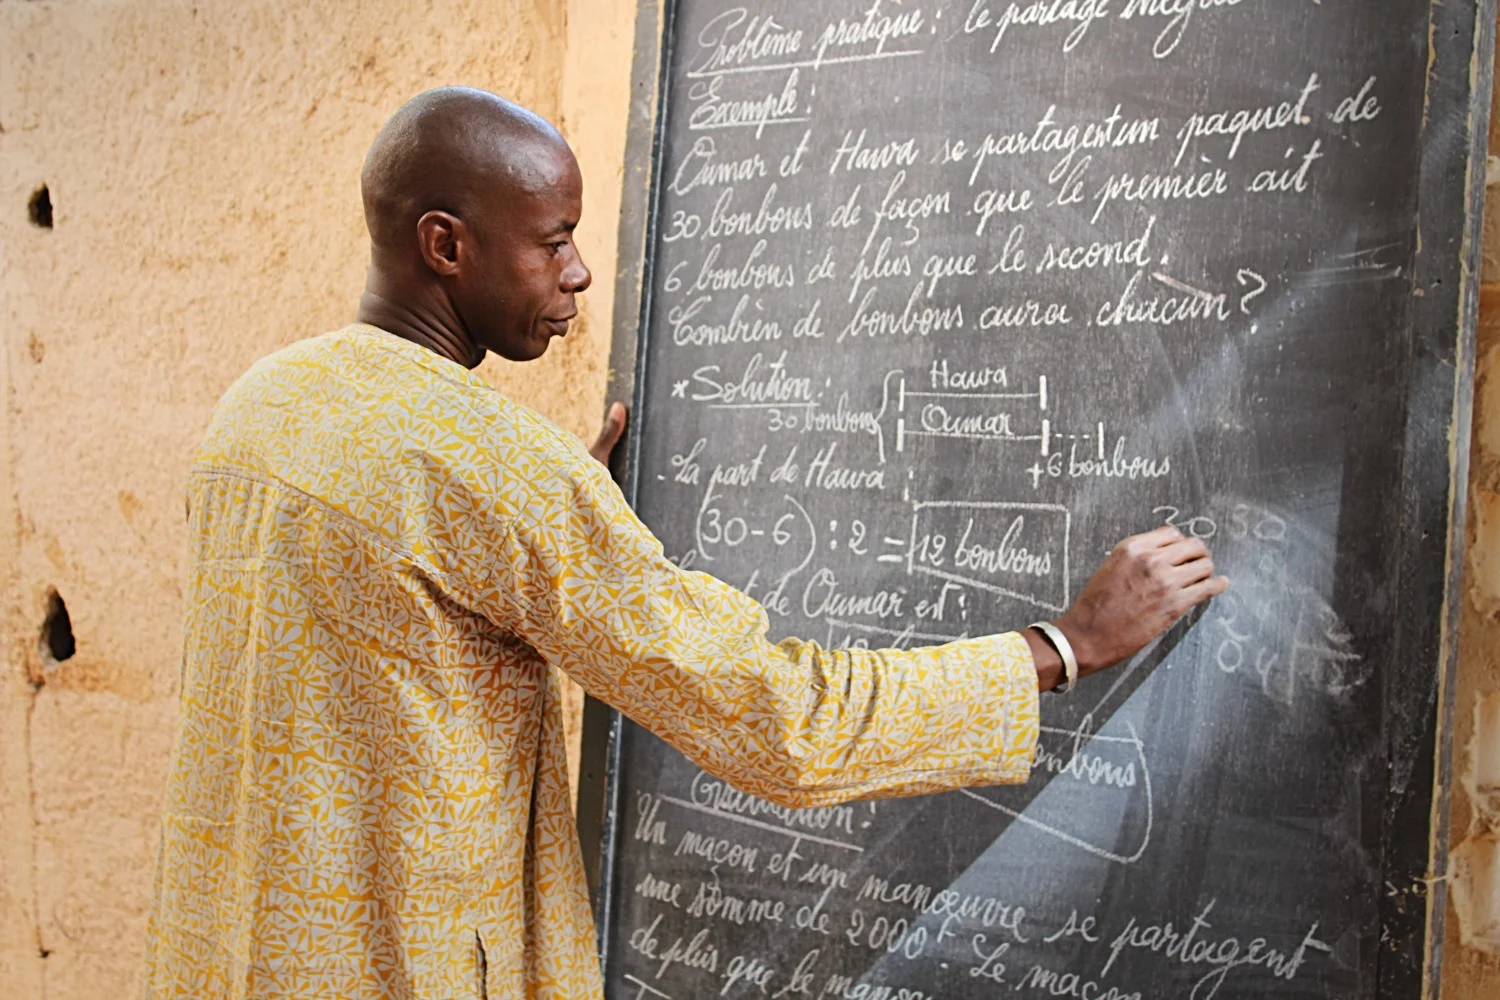 Problème pratique : le partage
Exemple :
Oumar et Hawa se partagent un paquet de
30 bonbons de façon que le premier ait
6 bonbons de plus que le second.
Combien de bonbons aura chacun ?
* Solution :
Hawa
30 bonbons
Oumar
+ 6 bonbons
- La part de Hawa :
(30 - 6) : 2 = 12 bonbons
de Oumar est :
30 30
onbons
Un maçon et un manœuvre se partagent
une somme de 2000F. Le maçon
de plus que le